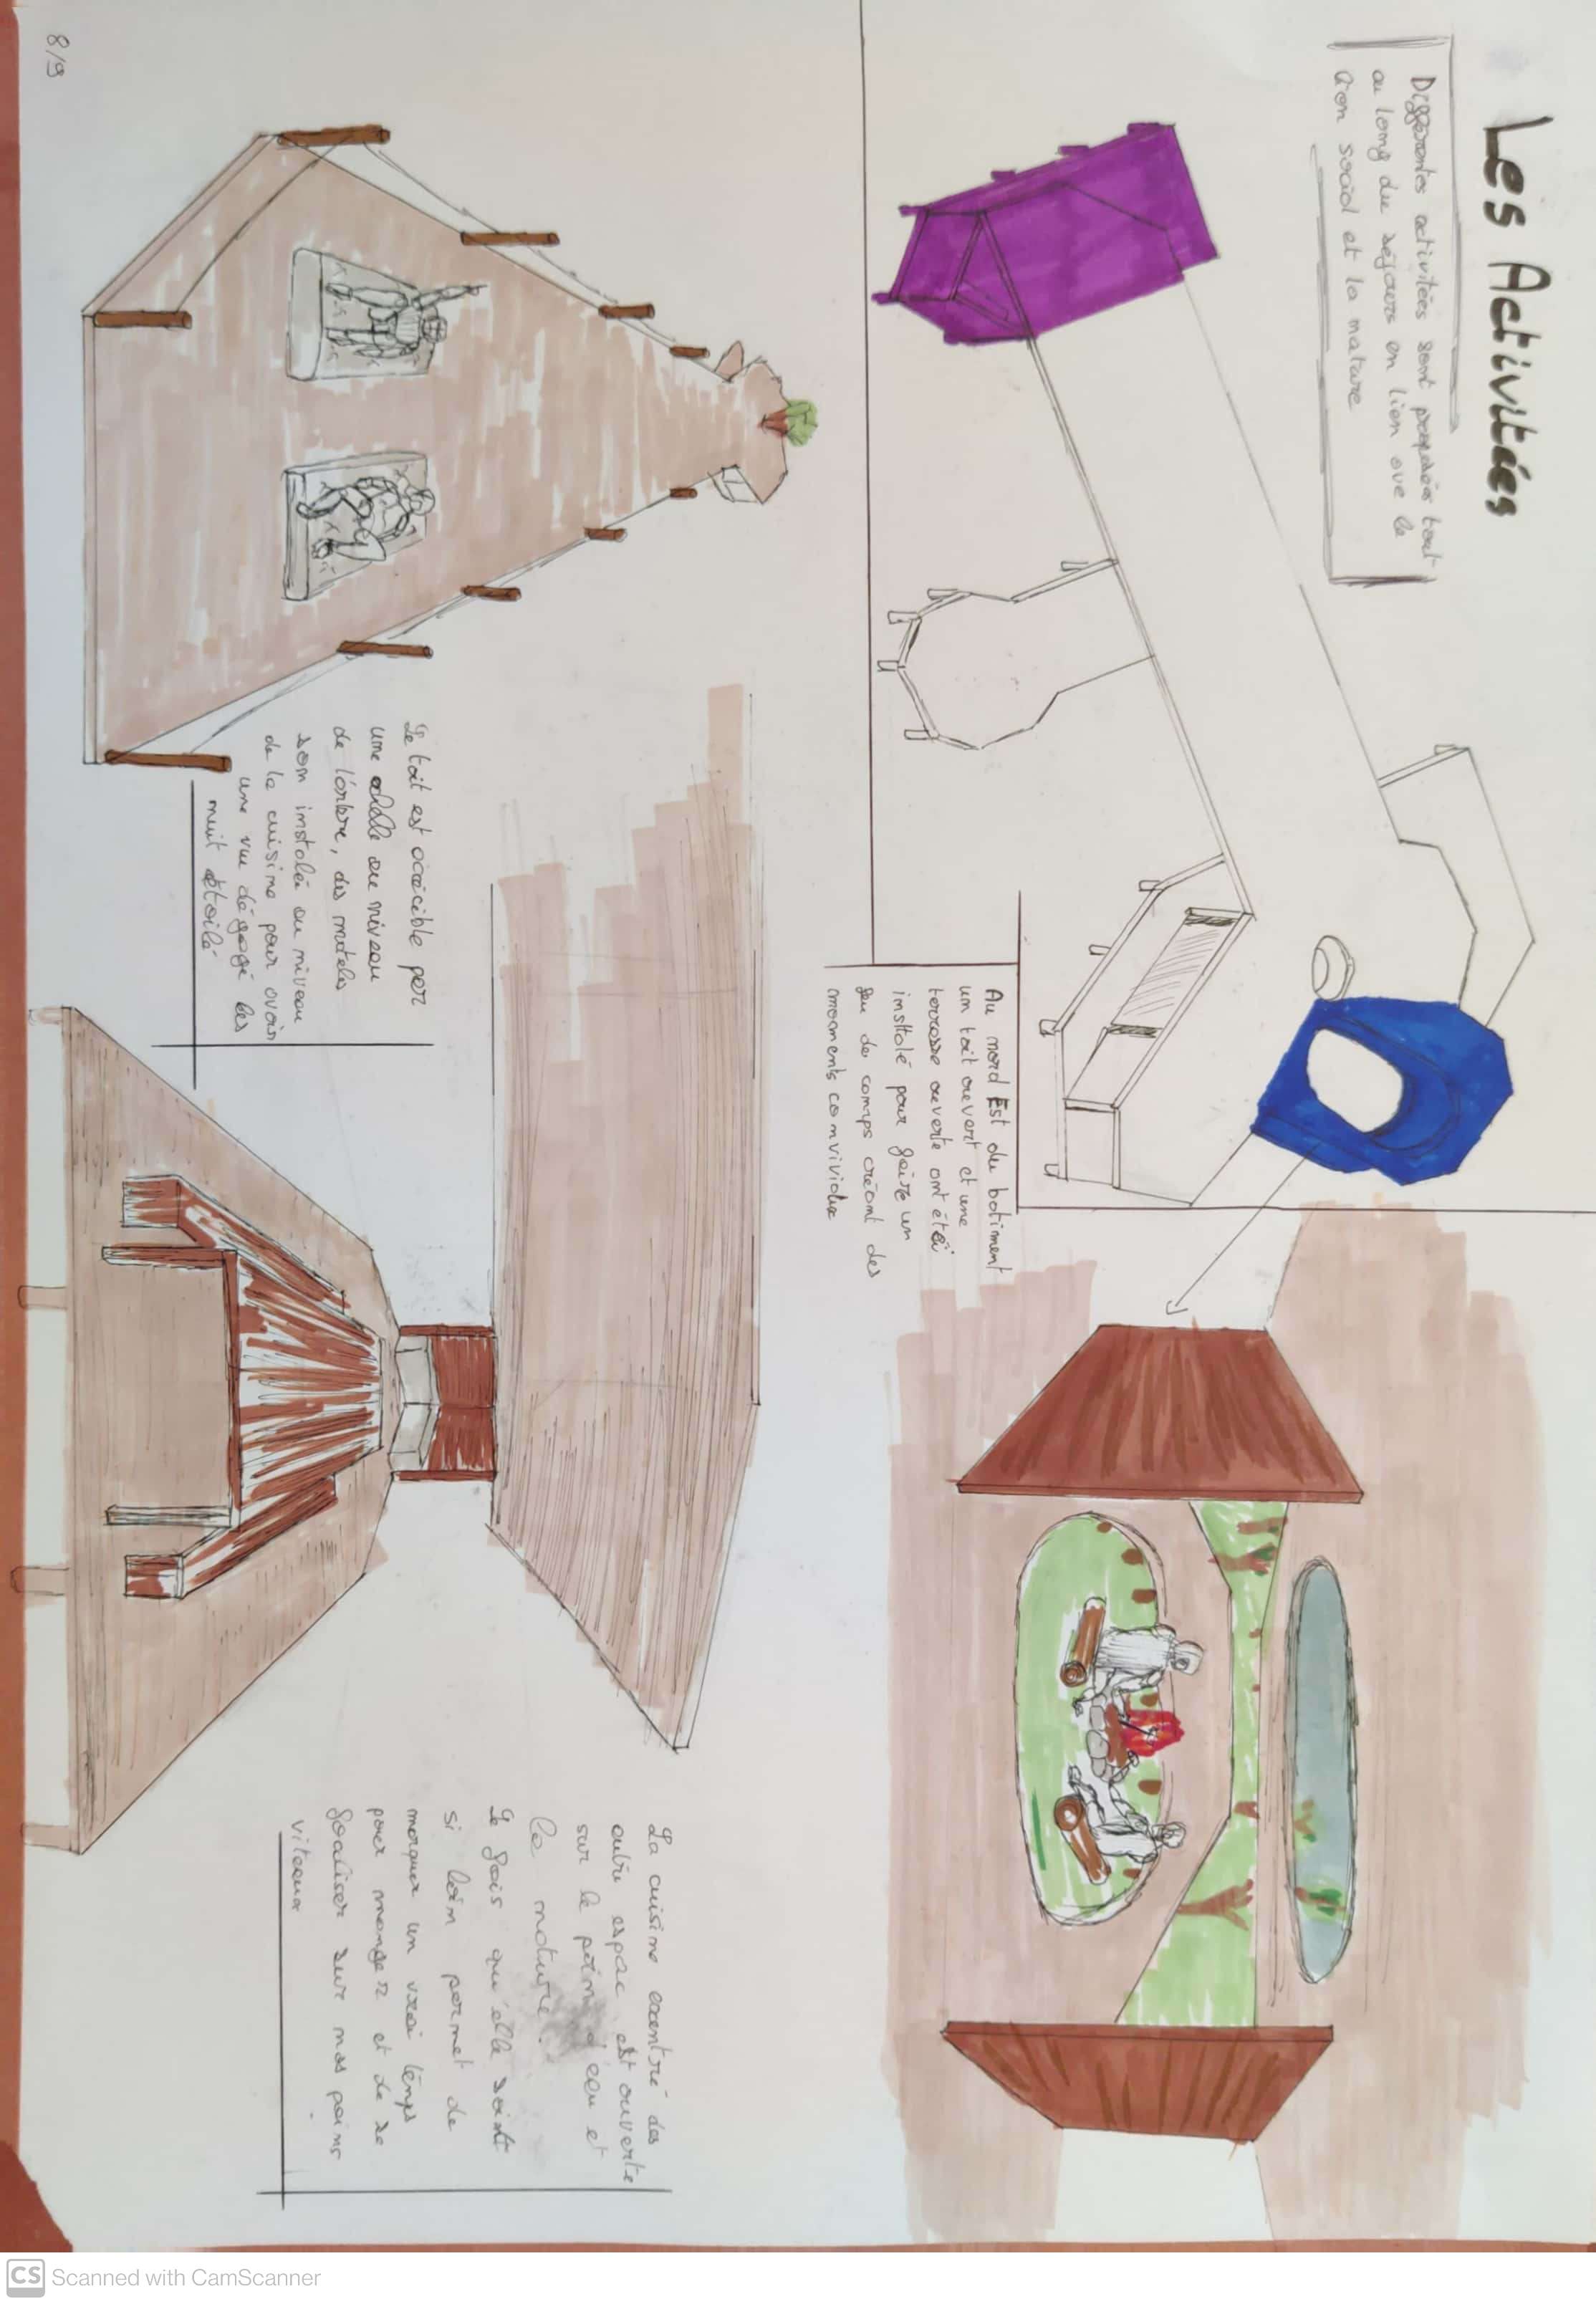 Les Activitées
Différentes activitées sont proposées tout
au long du séjours en lien ave le
lien social et la nature
Au nord Est du batiment
un toit ouvert et une
terrasse ouverte ont été
insttalé pour faire un
feu de camps créant des
moments conviviaux
Le toit est accécible par
une echelle au niveau
de l'arbre, des matelas
son instalé au niveau
de la cuisine pour avoir
une vue dégagé les
nuit étoilé
La cuisine excentré des
autre espac est ouverte
sur le d'eau et
la nature.
Le fais qu'elle soint
si loin permet de
marquer un vrai temps
pour manger et de se
focaliser sur nos poins
viteaux
8/9
CS Scanned with CamScanner